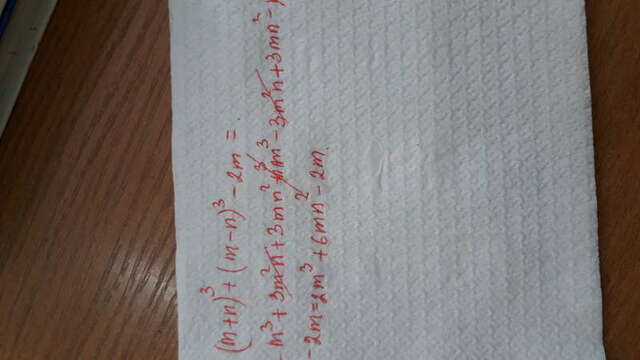 (m+n)³+(m-n)³-2m=.
m³+3m²n+3mn²+n³m³-3m²n+3mn²-
-2m=2m³+6mn²-2m